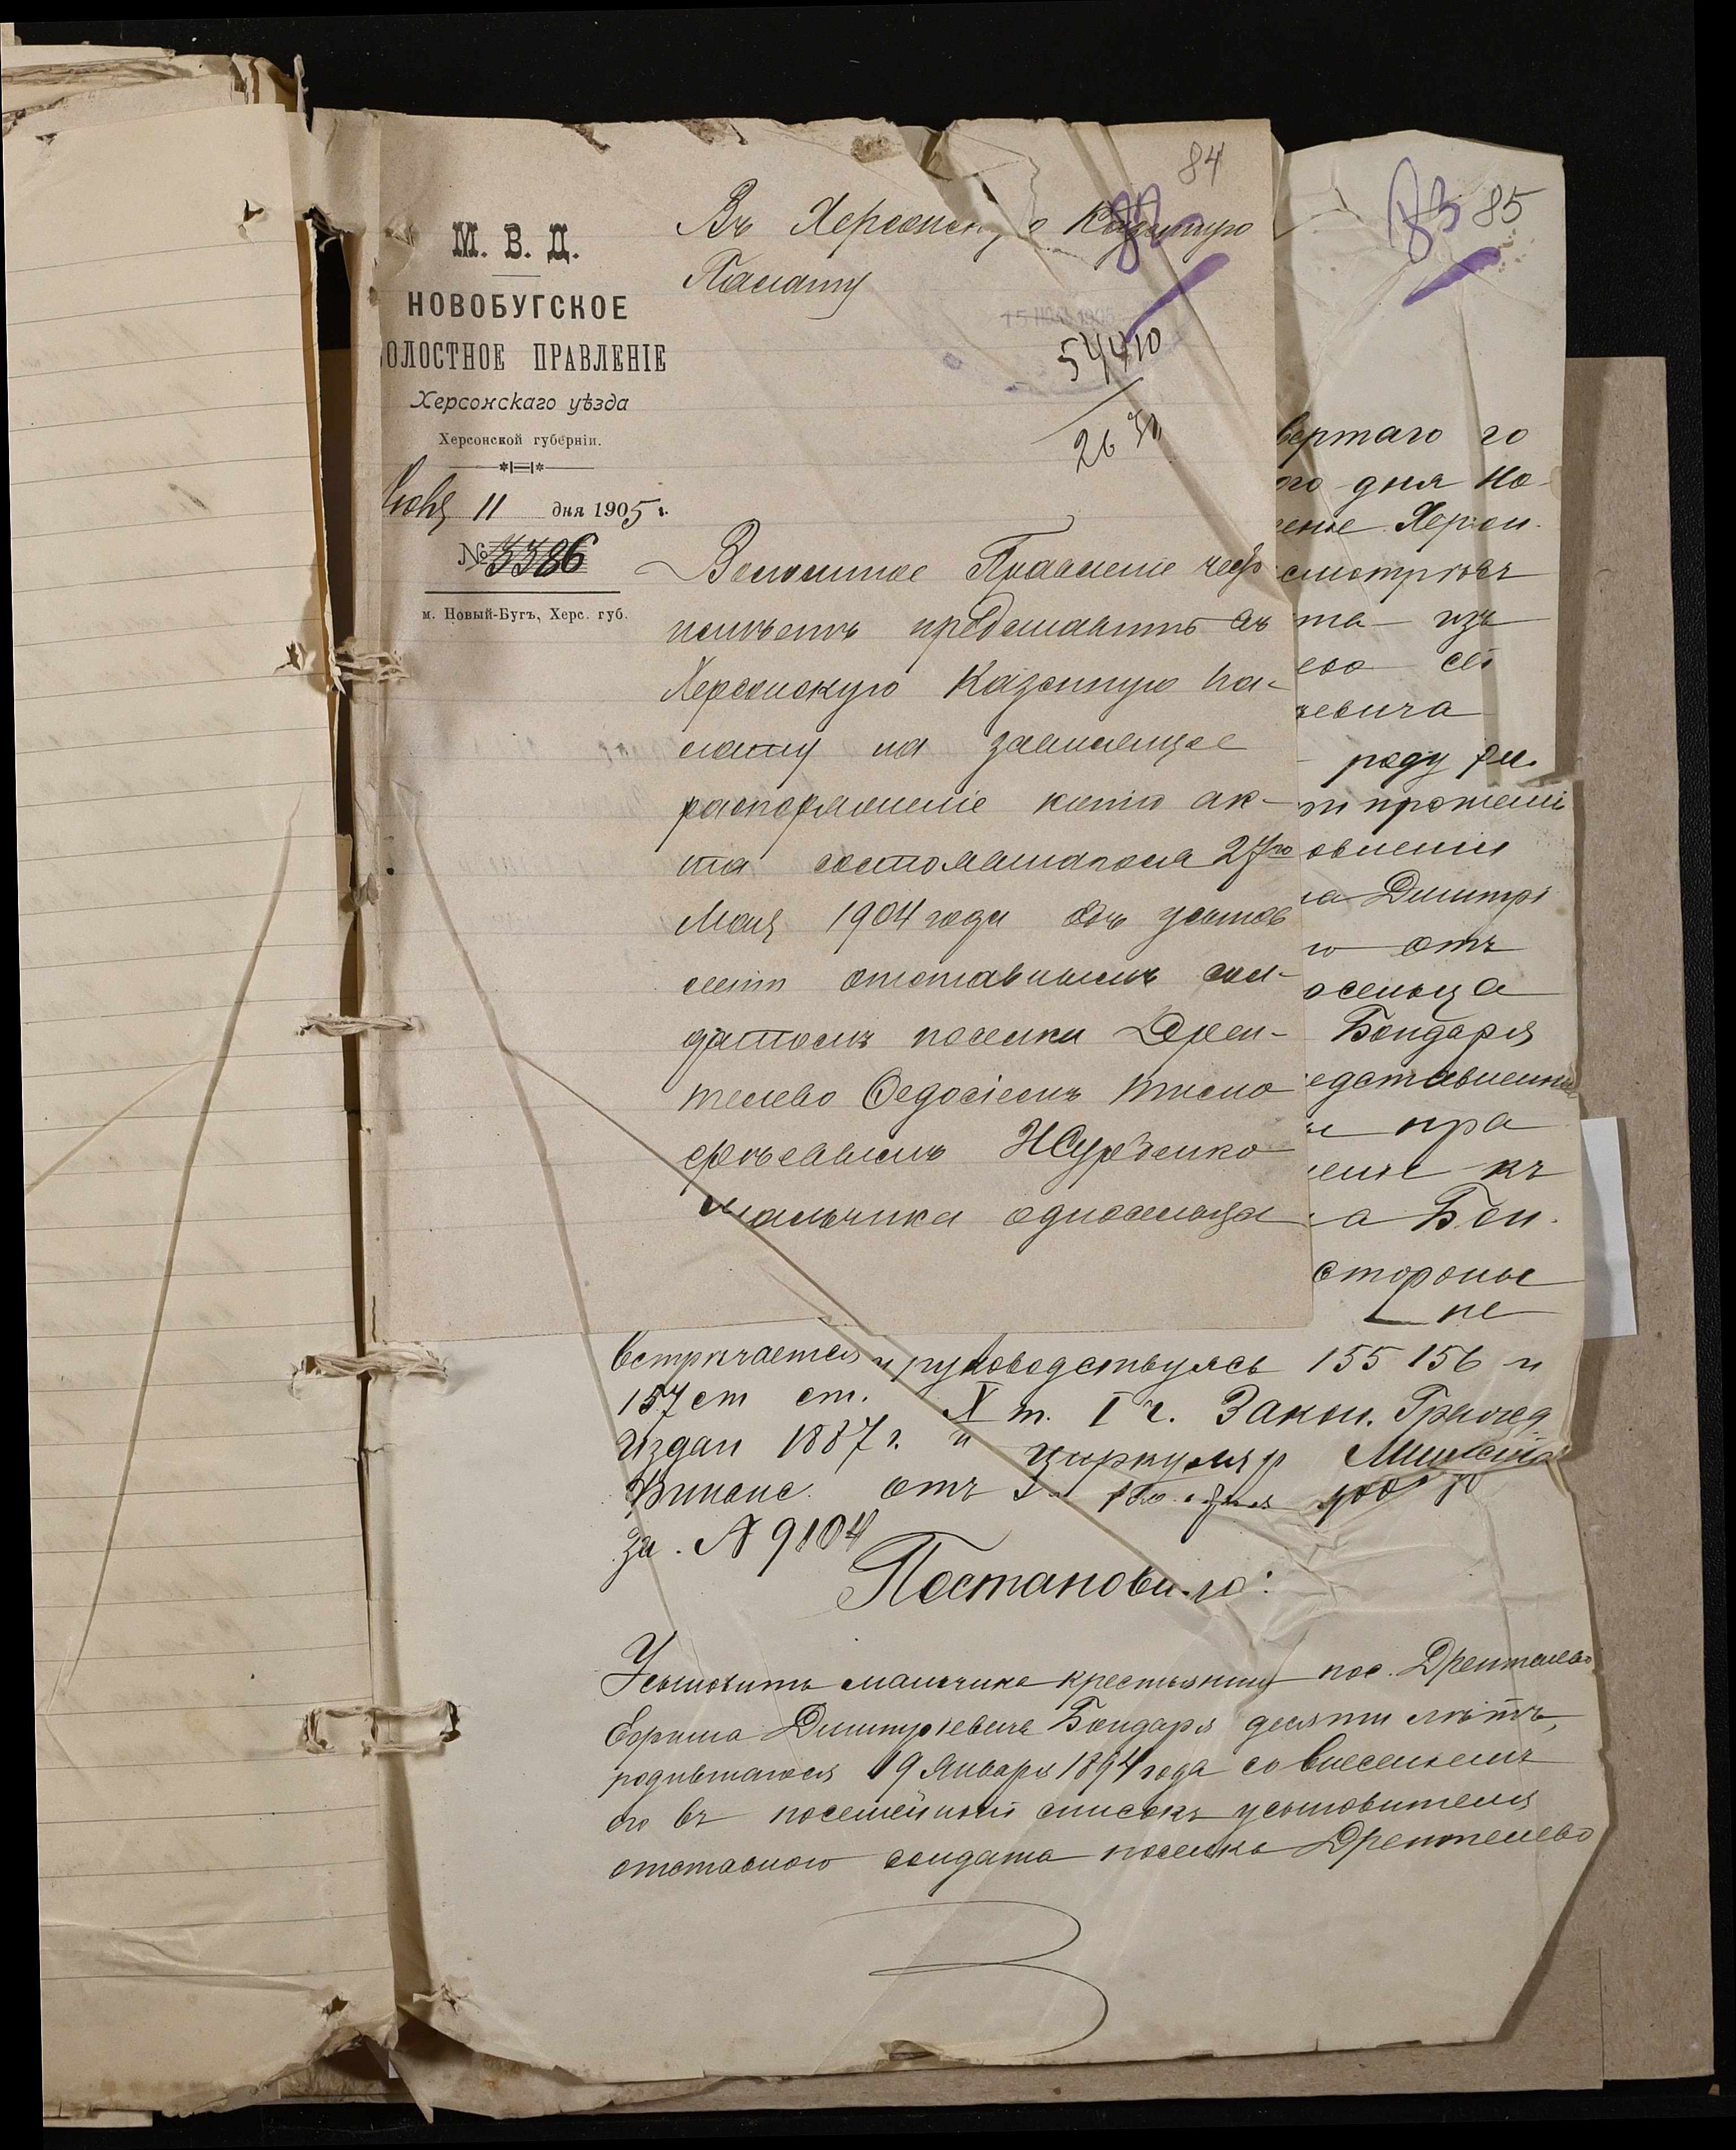 84
82
М. В. Д.
НОВОБУГСКОЕ
ОЛОСТНОЕ ПРАВЛЕНІЕ
Херсонскаго уѣзда
Херсонской губерніи.
11 дня 1905 г.
№ 3386
м. Новый-Бугъ, Херс. губ.
Въ Херсонск
Палату
54410
26
Волостное Правленіе
представить въ
Херсонскую Казенную Па-
лату на зависящее
распоряженіе копію ак-
та состоявшагося 27го
Мая 1904 года объ усынов
леніи отставнымъ сол-
датомъ поселка Дреп-
телево Федосіемъ Тимо
фѣевымъ Журбенко
мальчика односельца
83 85
вертаго го
ого дня Но-
Херсон.
смотрѣвъ
та изъ
его се
евича
роду
ти прошені
овленіи
а Дмитрі
го отъ
осельца
Бондаря
едставленны
пра
къ
а Бон.
стороны
не
встрѣчается и руководствуясь 155 156 и
157 ст ст. X т. I ч. Закон. Гражд
издан 1887 г. и циркуляр Министр
Финанс. отъ
за. № 9104
Постановило:
Усыновить мальчика крестьянину пос. Дрептелево
Ефрима Димитріевича Бондаря десяти лѣтъ,
родившагося 19 Января 1894 года со внесеніемъ
его въ посемейный списокъ усыновителя
отставного солдата поселка Дрептелево